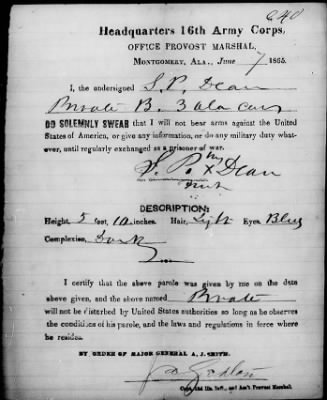 640
Headquarters 16th Army Corps,
OFFICE PROVOST MARSHAL,
MONTGOMERY, ALA., June 7 1865.
I, the undersigned S. P. Dean
Private B. 3 Ala Cav
DO SOLEMNLY SWEAR that I will not bear arms against the United
States of America, or give any information, or do any military duty what-
ever, until regularly exchanged as a prisoner of war.
S. P. his x Dean
mark
DESCRIPTION:
Height, 5 feet, 10 inches. Hair, Light Eyes, Blue
Complexion, Dark
I certify that the above parole was given by me on the date
above given, and the above named Private
will not be disterbed by United States authorities so long as he observes
the conditions of his parole, and the laws and regulations in force where
he resides.
BY ORDER OF MAJOR GENERAL A. J. SMITH.
Capt. 2nd Ills. Inft., and Ass't Provost Marshal.